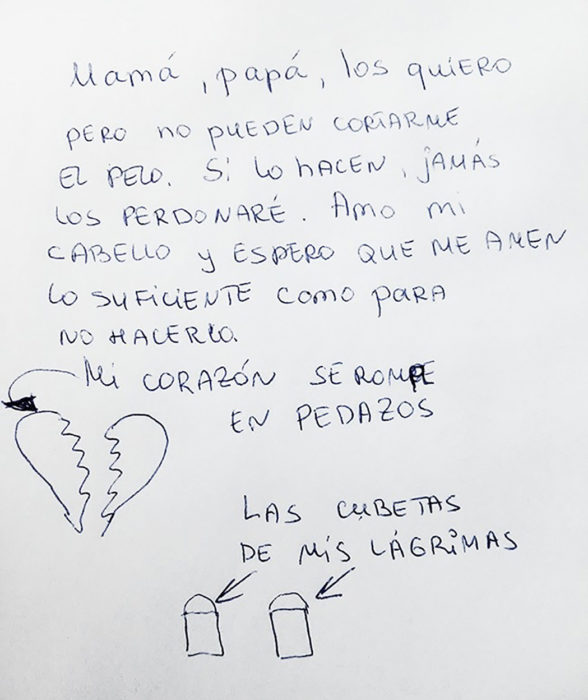 Mamá, papá, los quiero
pero no pueden cortarme
el pelo. Si lo hacen, jamás
los perdonaré. Amo mi
cabello y espero que me amen
lo suficiente como para
no hacerlo.
Mi corazón se rompe
en pedazos
Las cubetas
de mis lágrimas